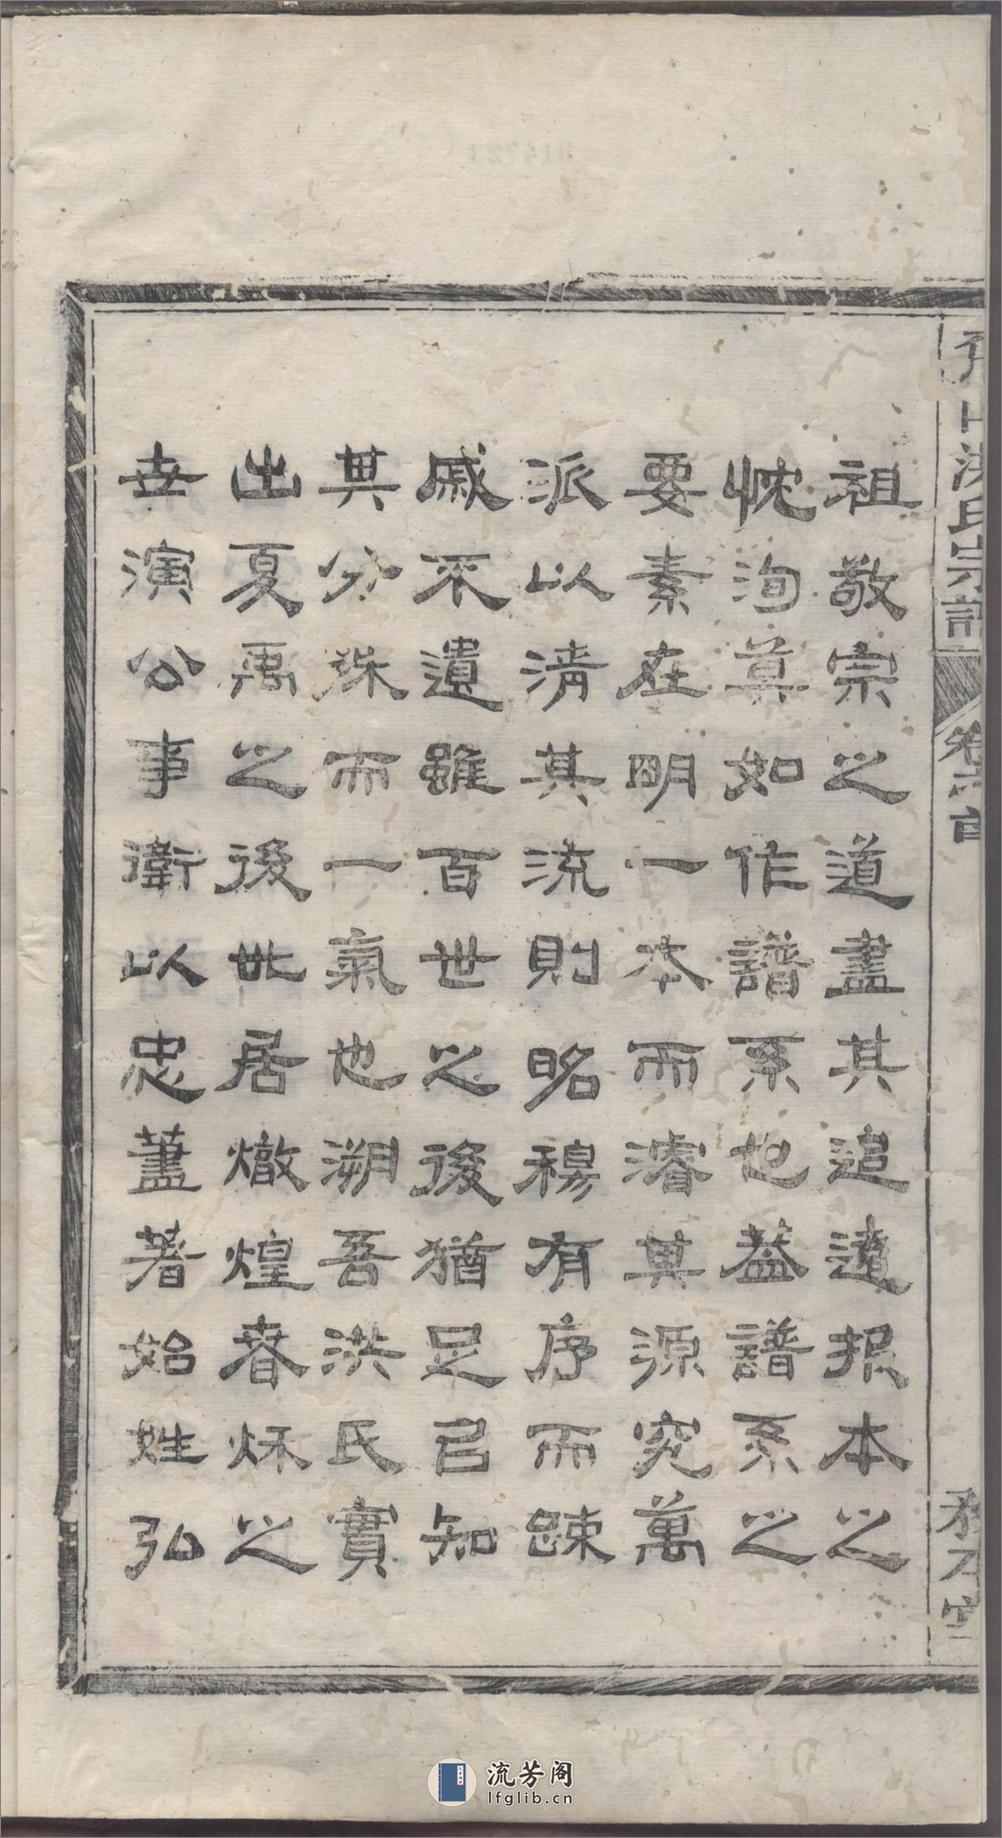 祖敬宗之道盡其追遠報本之
忱洵莫如作譜系也葢譜系之
要素在明一本而濬其源究萬
派以清其流則昭穆有序而踈
戚不遺雖百世之後猶足㠯知
其分殊而一氣也溯吾洪氏實
出夏禹之後世居燉煌春烁之
世演公事衛以忠藎著始姓弘
洪氏宗譜
卷
流芳阁
lfglib.cn